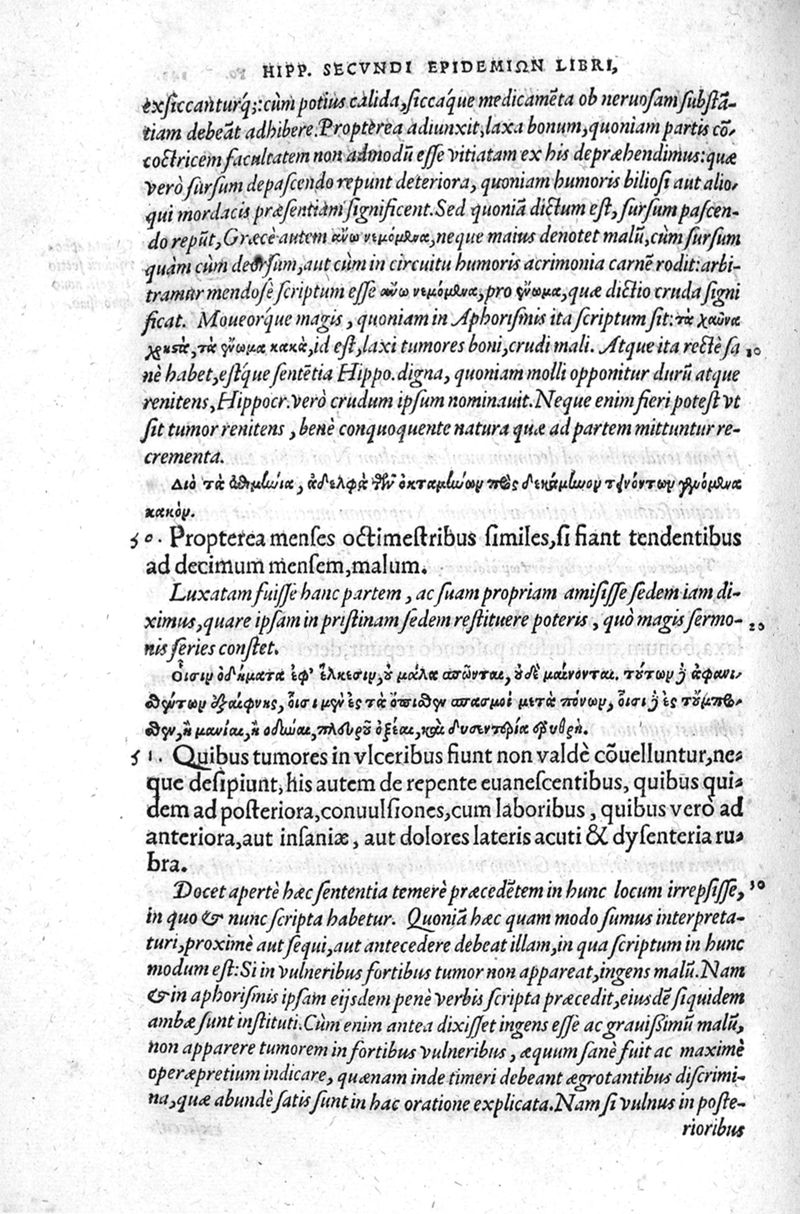 HIPP. SECVNDI EPIDEMIΩN LIBRI,
exſiccanturq́;: cùm potius calida, ſiccaq́ue medicamēta ob neruoſam ſubſtā-
tiam debeāt adhibere. Propterea adiunxit, laxa bonum, quoniam partis cō-
coctricem facultatem non admodū eſſe vitiatam ex his depræhendimus: quæ
verò ſurſum depaſcendo repunt deteriora, quoniam humoris bilioſi aut alio-
qui mordacis præſentiam ſignificent. Sed quoniā dictum eſt, ſurſum paſcen-
do repūt, Græcè autem ἄνω νεμόμενα, neque maius denotet malū, cùm ſurſum
quàm cùm deorſum, aut cùm in circuitu humoris acrimonia carnē rodit: arbi-
tramur mendosè ſcriptum eſſe ἄνω νεμόμενα, pro ἔνωμα, quæ dictio cruda ſigni
ficat. Moueorq́ue magis, quoniam in Aphoriſmis ita ſcriptum ſit: τὰ χαῦνα
χρηστὰ, τὰ ἔνωμα κακὰ, id eſt, laxi tumores boni, crudi mali. Atque ita rectè ſa 10
nè habet, eſtq́ue ſentētia Hippo. digna, quoniam molli opponitur durū atque
renitens, Hippocr. verò crudum ipſum nominauit. Neque enim fieri poteſt vt
ſit tumor renitens, benè conquoquente natura quæ ad partem mittuntur re-
crementa.
Διὸ τὰ ἐπιμήνια, ἀδελφὰ τῶν ὀκταμήνων πρὸς δεκάμηνον τεινόντων γενόμενα
κακόν.
50. Propterea menſes octimeſtribus ſimiles, ſi fiant tendentibus
ad decimum menſem, malum.
Luxatam fuiſſe hanc partem, ac ſuam propriam amiſiſſe ſedem iam di-
ximus, quare ipſam in priſtinam ſedem reſtituere poteris, quò magis ſermo- 20
nis ſeries conſtet.
Οἷσιν οἰδήματα ἐφ' ἕλκεσιν, οὐ μάλα σπῶνται, οὐδὲ μαίνονται. τούτων δὲ ἀφανι-
σθέντων ἐξαίφνης, οἷσι μὲν ἐς τὰ ὄπισθεν σπασμοὶ μετὰ πόνων, οἷσι δὲ ἐς τοὔμπρο-
σθεν, ἢ μανίαι, ἢ ὀδύναι, πλευροῦ ὀξέαι, καὶ δυσεντερία ἐρυθρή.
51. Quibus tumores in vlceribus fiunt non valdè cōuelluntur, ne-
que deſipiunt, his autem de repente euaneſcentibus, quibus qui-
dem ad poſteriora, conuulſiones, cum laboribus, quibus verò ad
anteriora, aut inſaniæ, aut dolores lateris acuti & dyſenteria ru-
bra.
Docet apertè hæc ſententia temerè præcedētem in hunc locum irrepſiſſe, 30
in quo & nunc ſcripta habetur. Quoniā hæc quam modo ſumus interpreta-
turi, proximè aut ſequi, aut antecedere debeat illam, in qua ſcriptum in hunc
modum eſt: Si in vulneribus fortibus tumor non appareat, ingens malū. Nam
& in aphoriſmis ipſam eijsdem penè verbis ſcripta præcedit, eiusdē ſiquidem
ambæ ſunt inſtituti. Cùm enim antea dixiſſet ingens eſſe ac grauiſſimū malū,
non apparere tumorem in fortibus vulneribus, æquum ſanè fuit ac maximè
operæpretium indicare, quænam inde timeri debeant ægrotantibus diſcrimi-
na, quæ abundè ſatis ſunt in hac oratione explicata. Nam ſi vulnus in poſte-
rioribus